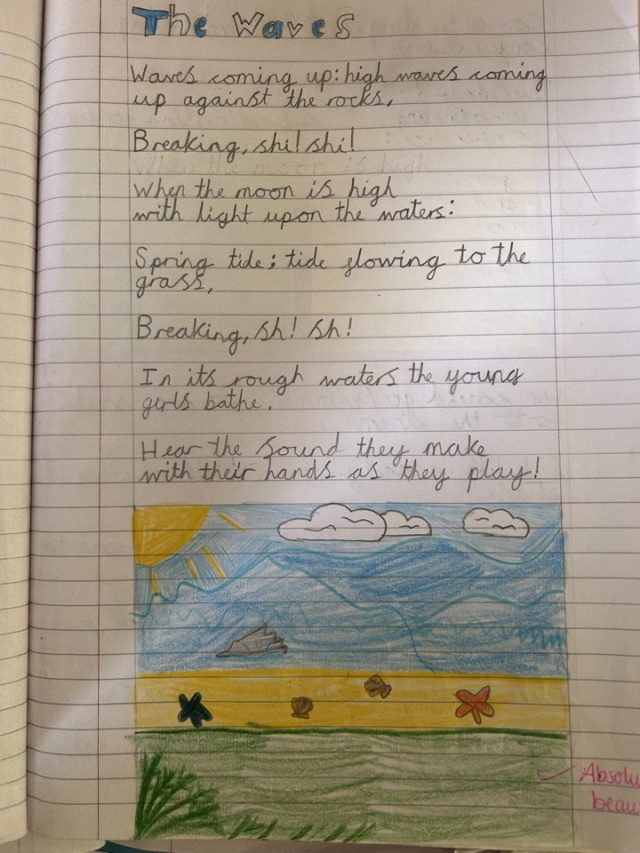 The Waves
Waves coming up: high waves coming
up against the rocks,
Breaking, shi! shi!
When the moon is high
with light upon the waters:
Spring tide; tide flowing to the
grass,
Breaking, sh! sh!
In its rough waters the young
girls bathe.
Hear the sound they make
with their hands as they play!
Absolu
beau